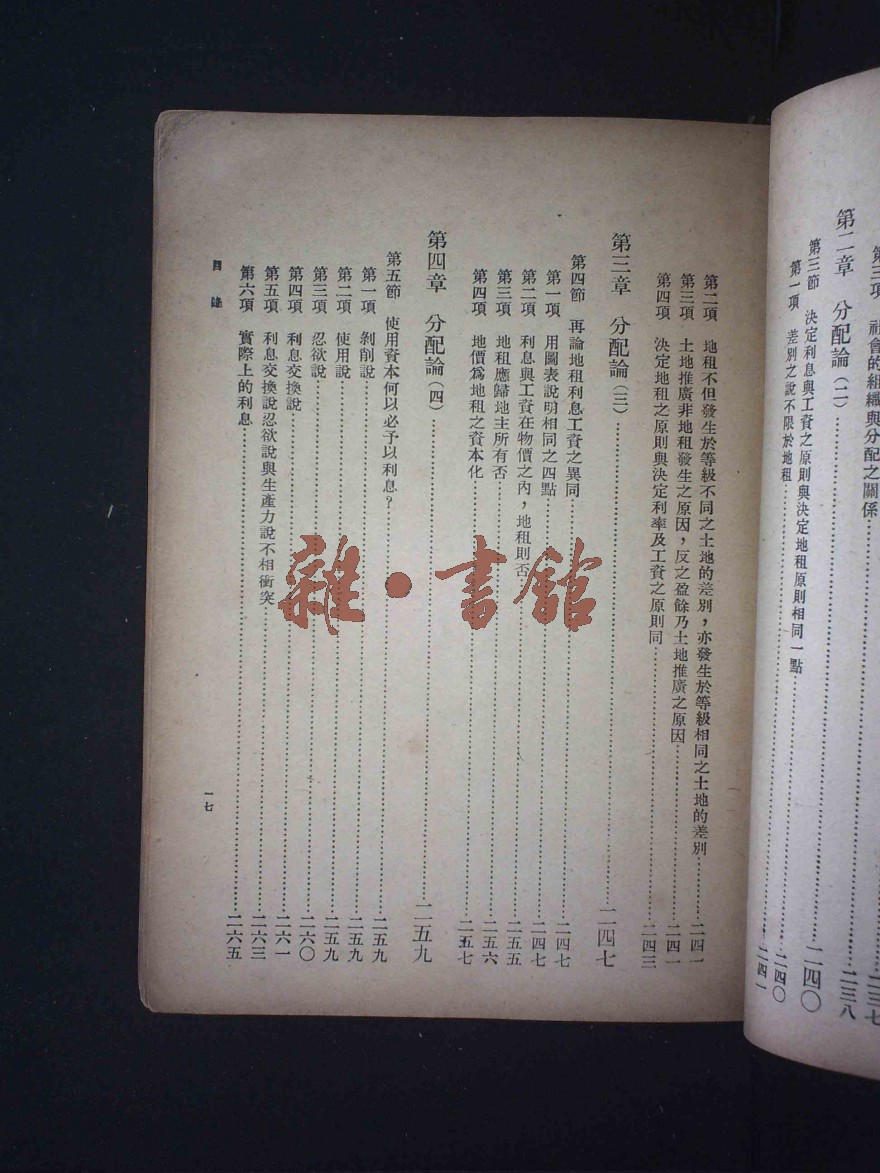 第三項　社會的組織與分配之關係……二三七
第二章　分配論(二)……二三八
第三節　決定利息與工資之原則與決定地租原則相同一點……二四〇
第一項　差別之說不限於地租……二四〇
二四一
第二項　地租不但發生於等級不同之土地的差別，亦發生於等級相同之土地的差別……二四一
第三項　土地推廣非地租發生之原因，反之盈餘乃土地推廣之原因……二四一
第四項　決定地租之原則與決定利率及工資之原則同……二四三
第三章　分配論(三)……二四七
第四節　再論地租利息工資之異同……二四七
第一項　用圖表說明相同之四點……二四七
第二項　利息與工資在物價之內，地租則否……二五五
第三項　地租應歸地主所有否……二五六
第四項　地價爲地租之資本化……二五七
第四章　分配論(四)……二五九
第五節　使用資本何以必予以利息？……二五九
第一項　剝削說……二五九
第二項　使用說……二五九
第三項　忍欲說……二六〇
第四項　利息交換說……二六一
第五項　利息交換說忍欲說與生產力說不相衝突……二六三
第六項　實際上的利息……二六五
目錄
一七
雜·書館